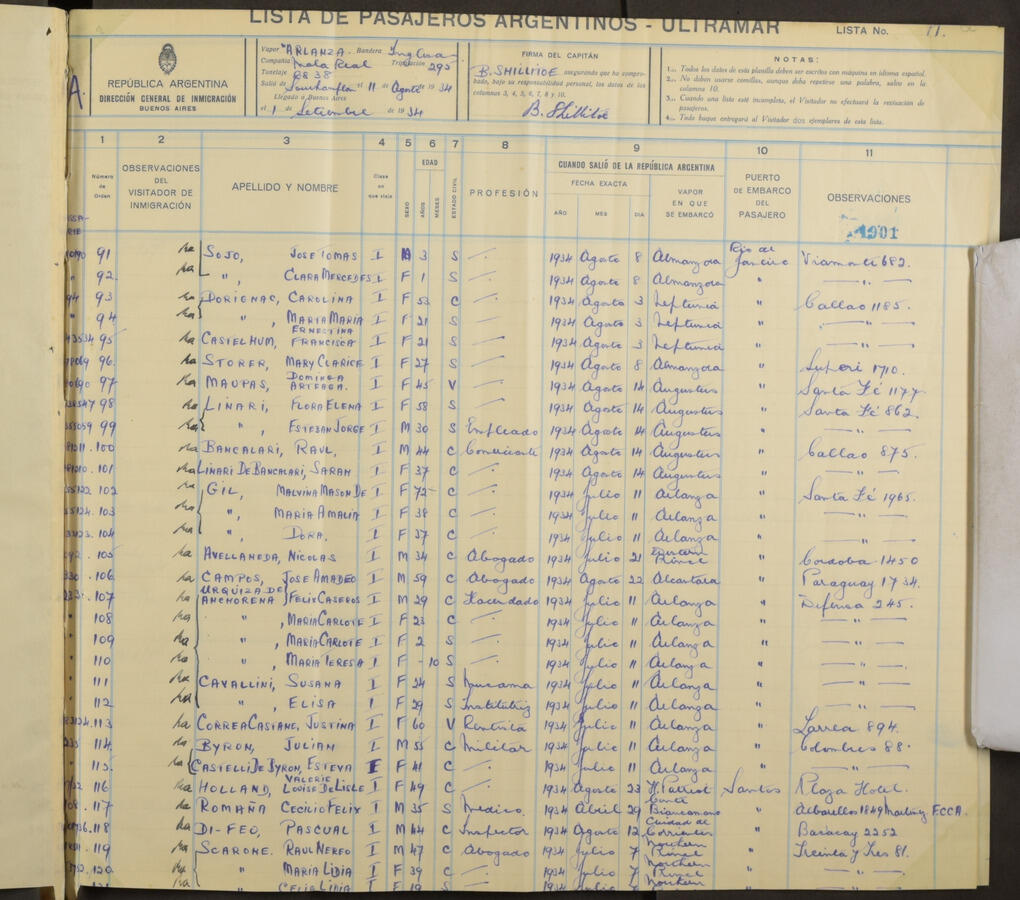 LISTA DE PASAJEROS ARGENTINOS - ULTRAMAR
LISTA No. 11.
A.
REPÚBLICA ARGENTINA
DIRECCIÓN GENERAL DE INMIGRACIÓN
BUENOS AIRES
Vapor "ARLANZA. Bandera Inglesa
Compañia Mala Real Tripulación 295
Tonelaje 8838
Salió de Southampton el 11 de Agosto de 1934
Llegado a Buenos Aires
el 1 de Setiembre de 1934
FIRMA DEL CAPITÁN
B. SHILLITOE asegurando que ha comprobado, bajo su responsabilidad personal, los datos de las columnas 3, 4, 5, 6, 7, 8 y 10.
B. Shillitoe
NOTAS:
1.— Todos los datos de esta planilla deben ser escritos con máquina en idioma español.
2.— No deben usarse comillas, aunque deba repetirse una palabra, salvo en la columna 10.
3.— Cuando una lista esté incompleta, el Visitador no efectuará la revisación de pasajeros.
4.— Todo buque entregará al Visitador dos ejemplares de esta lista.
1 2 3 4 5 6 7 8 9 10 11
Número de Orden
OBSERVACIONES DEL VISITADOR DE INMIGRACIÓN
APELLIDO Y NOMBRE
Clase en que viaja
SEXO
EDAD
AÑOS
MESES
ESTADO CIVIL
PROFESIÓN
CUANDO SALIÓ DE LA REPÚBLICA ARGENTINA
FECHA EXACTA
AÑO MES DIA
VAPOR EN QUE SE EMBARCÓ
PUERTO DE EMBARCO DEL PASAJERO
OBSERVACIONES
1901
91 SOJO, JOSE TOMAS I M 3 S 1934 Agosto 8 Almanzora Rio de Janeiro Viamonte 682.
92 " CLARA MERCEDES I F 1 S 1934 Agosto 8 Almanzora " — " —
93 DORIGNAC, CAROLINA I F 53 C 1934 Agosto 3 Neptunia " Callao 1185.
94 " , MARIA MARIA I F 21 S 1934 Agosto 3 Neptunia " — " —
95 CASTELHUM, ERNESTINA FRANCISCA I F 21 S 1934 Agosto 3 Neptunia " — " —
96. STORER, MARY CLARICE I F 27 S 1934 Agosto 8 Almanzora " Superi 1710.
97 MAUPAS, DOMINGA ARTEAGA. I F 45 V 1934 Agosto 14 Augustus " Santa Fé 1177
98 LINARI, FLORA ELENA I F 58 S 1934 Agosto 14 Augustus " Santa Fé 862.
99 " , ESTEBAN JORGE I M 30 S Empleado 1934 Agosto 14 Augustus " — " —
100 BANCALARI, RAUL, I M 44 C Comerciante 1934 Agosto 14 Augustus " Callao 875.
101 LINARI DE BANCALARI, SARAH I F 37 C 1934 Agosto 14 Augustus " — " —
102 GIL, MALVINA MASON DE I F 72 C 1934 Julio 11 Arlanza " Santa Fé 1965.
103 " , MARIA AMALIA I F 38 C 1934 Julio 11 Arlanza " — " —
104 " , DORA. I F 37 C 1934 Julio 11 Arlanza " — " —
105 AVELLANEDA, NICOLAS I M 34 C Abogado 1934 Julio 21 Prince " Cordoba 1450
106 CAMPOS, JOSE AMADEO I M 59 C Abogado 1934 Agosto 22 Alcantara " Paraguay 1734.
107 URQUIZA DE ANCHORENA FELIX CASEROS I M 29 C Hacendado 1934 Julio 11 Arlanza " Defensa 245.
108 " , MARIA CARLOTE I F 23 C 1934 Julio 11 Arlanza " — " —
109 " , MARIA CARLOTE I F 2 S 1934 Julio 11 Arlanza " — " —
110 " , MARIA TERESA I F - 10 S 1934 Julio 11 Arlanza " — " —
111 CAVALLINI, SUSANA I F 24 S Mucama 1934 Julio 11 Arlanza " — " —
112 " , ELISA I F 29 S Institutriz 1934 Julio 11 Arlanza " — " —
113 CORREA CASTANE, JUSTINA I F 60 V Rentista 1934 Julio 11 Arlanza " Larrea 894.
114. BYRON, JULIAN I M 55 C Militar 1934 Julio 11 Arlanza " Colombres 88.
115. CASTELLI DE BYRON, ESTEVA I F 41 C 1934 Julio 11 Arlanza " — " —
116 HOLLAND, VALERIE LOUISE DE LISLE I F 49 C 1934 Agosto 23 H. Patriot Santos Plaza Hotel.
117 ROMAÑA CECILIO FELIX I M 35 S Medico 1934 Abril 29 Conte Biancamano " Albarellos 1849 Martinez F.C.C.A.
118 DI-FEO, PASCUAL I M 44 C Inspector 1934 Agosto 12 Ciudad de Corrientes " Baracay 2252
119 SCARONE. RAUL NEREO I M 47 C Abogado 1934 Julio 7 Northern Prince " Treinta y Tres 81.
120 " MARIA LIDIA I F 39 C 1934 Julio 7 Northern Prince " — " —
121 CELIA LIDIA I F 19 S Northern